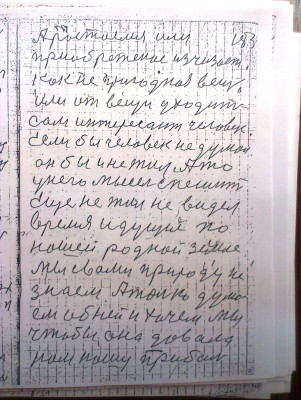 приобретение изчизает
как не пригодная вещ.
или от вещи уходит
сам интересант человек.
Если бы человек не думал
он бы и не жил. А то
у него мысль спешит
еще не жил не видел
время идущие по
нашей родной земле
Мы с вами природу не
знаем. А только дума
ем об ней и хочем мы
чтобы она довала
нам нашу прибыл